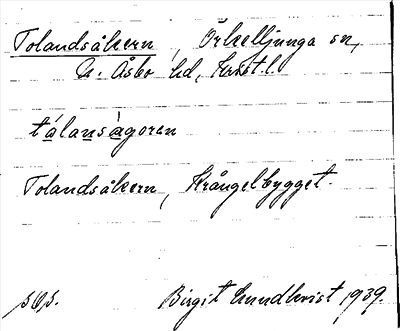 Tolandsåkern, Örkelljunga sn,
N. Åsbo hd, Krist.l.
tålansågoren
Tolandsåkern, Krångelbygget.
565.
Birgit Lundkvist 1939.